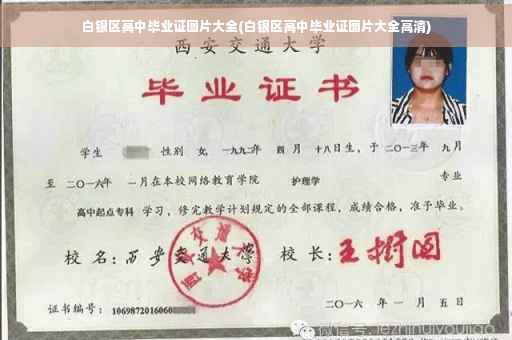 白银区高中毕业证图片大全(白银区高中毕业证图片大全高清)
西安交通大学
毕业证书
学生 性别 女, 一九九二年 四月 十八日生, 于二〇一三年 九月
至 二〇一六年 一月在本校网络教育学院 护理学 专业
高中起点专科 学习, 修完教学计划规定的全部课程, 成绩合格, 准予毕业。
校名: 西安交通大学 校长: 王树国
西安交通大学
证书编号: 1069872016060
二〇一六年 一月 五日
微信号: jezhihuiyoujiao